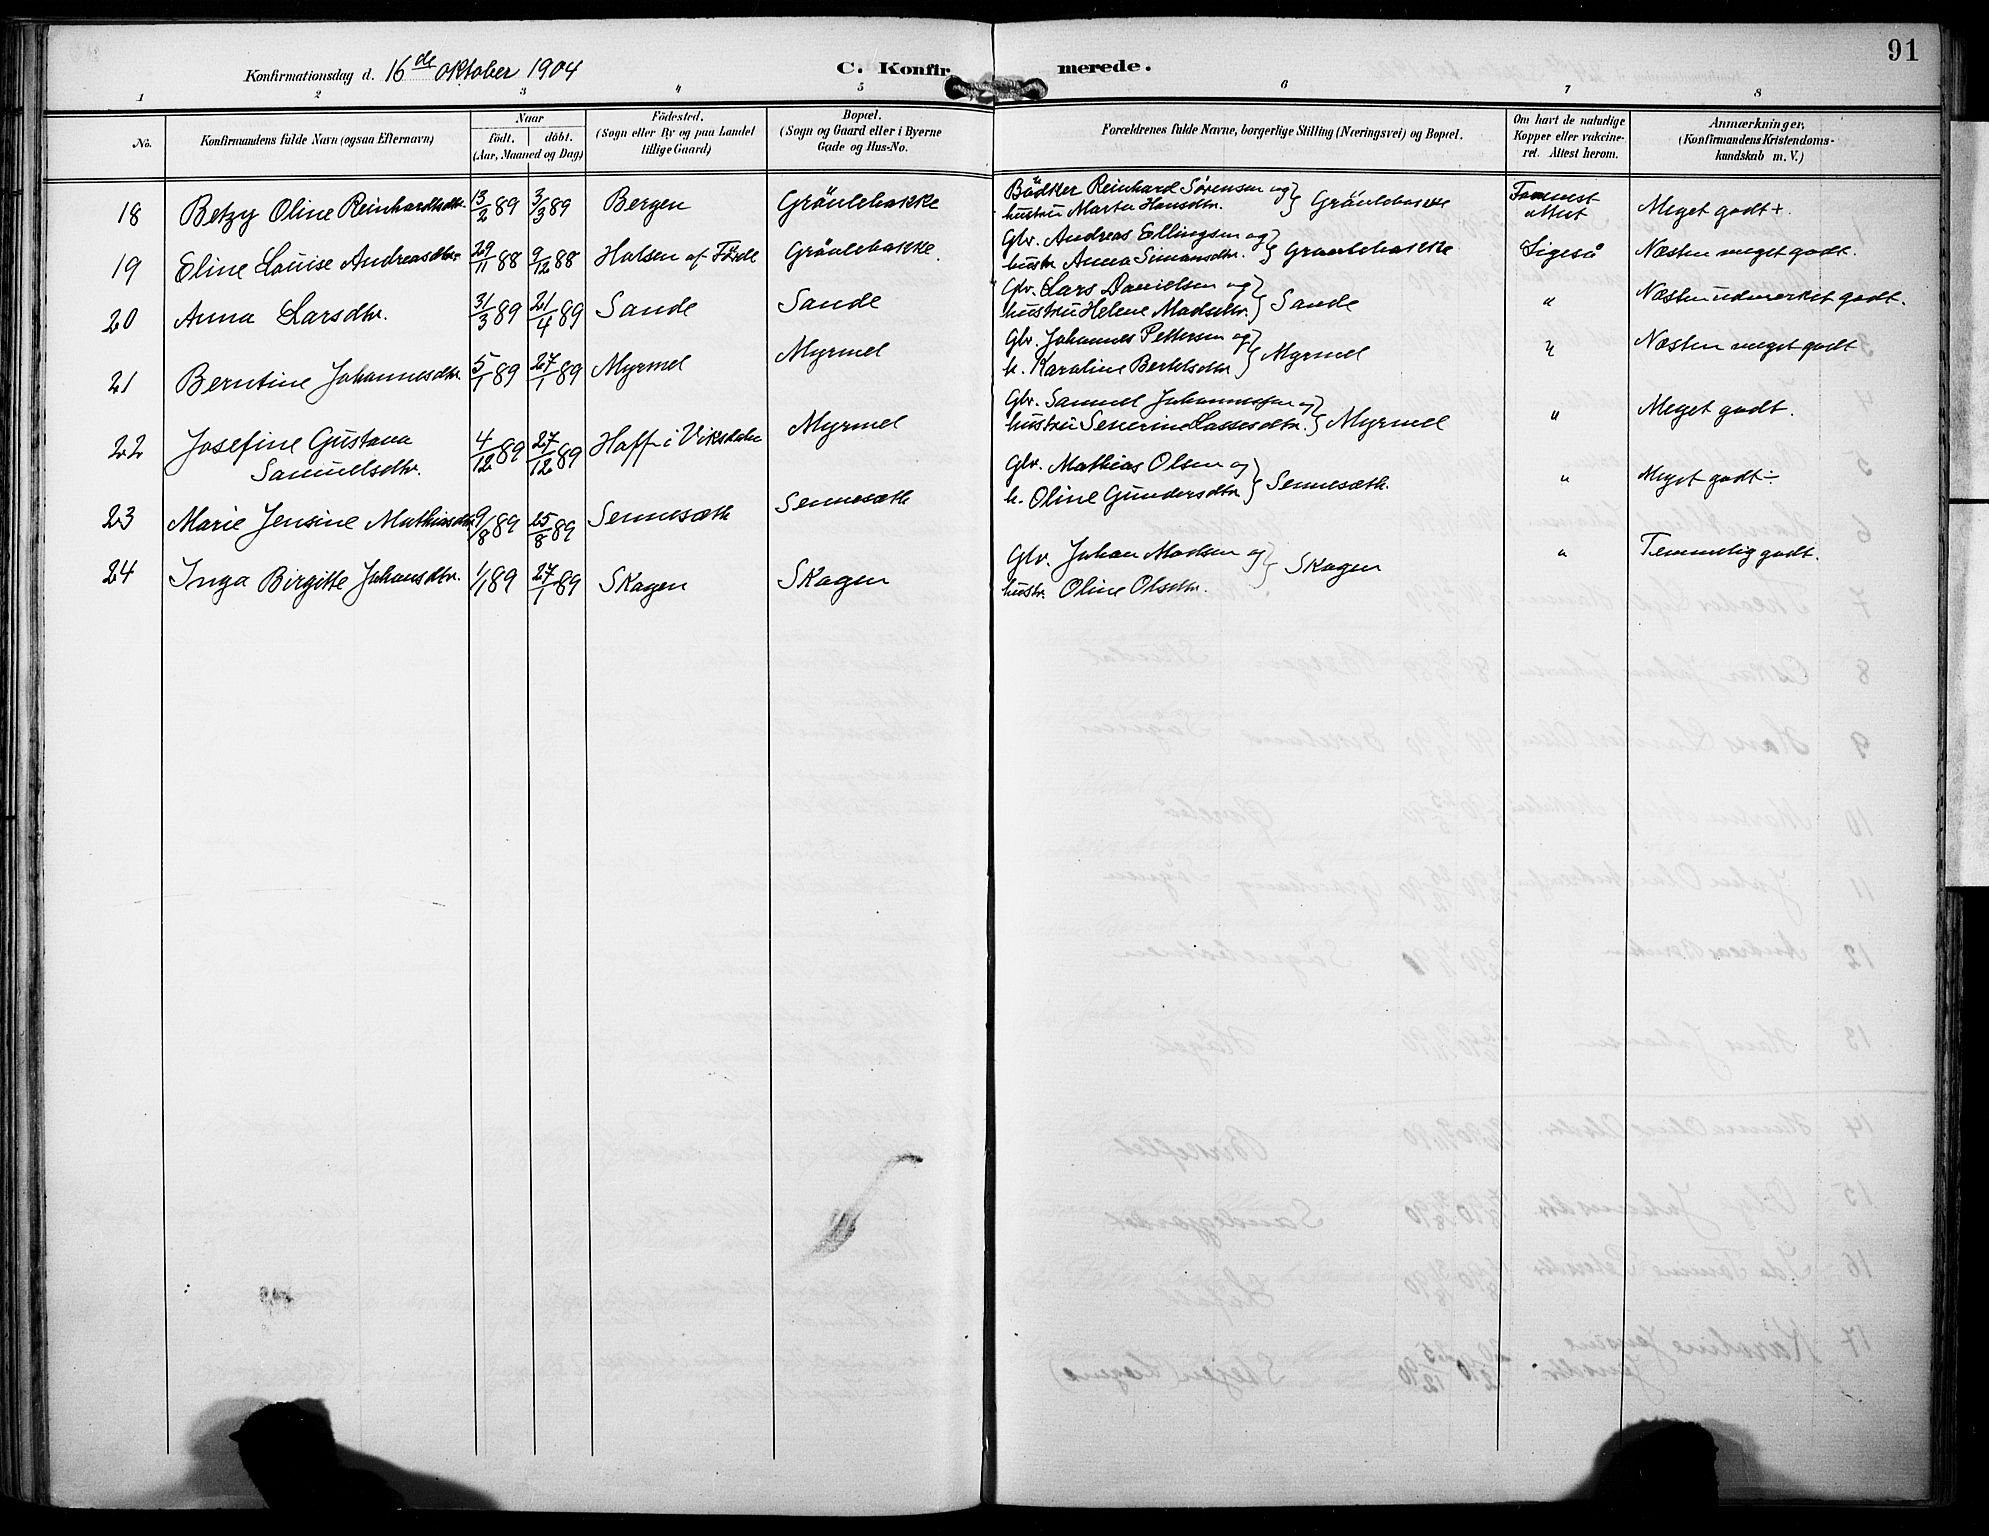 91
Konfirmationsdag d. 16de Oktober 1904 C. Konfirmerede.
1 2 3 4 5 6 7 8
No. Konfirmandens fulde Navn (ogsaa Efternavn) Naar født. døbt. (Aar, Maaned og Dag) Födested. (Sogn eller By og paa Landet tillige Gaard) Bopæl. (Sogn og Gaard eller i Byerne Gade og Hus-No. Forældrenes fulde Navne, borgerlige Stilling (Næringsvei) og Bopæl. Om havt de naturlige Kopper eller vakcineret. Attest herom. Anmærkninger, (Konfirmandens Kristendomskundskab m. V.)
18 Betzy Oline Reinhardtsdtr. 13/2 89 3/3 89 Bergen Grönlebakke Bödker Reinhard Sørensen og hustru Marta Hansdtr. } Grönlebakke Meget godt +.
19 Eline Louise Andreasdtr. 29/11 88 9/12 88 Halsen af Förde Grönlebakke. Gbr. Andreas Ellingsen og hustr. Anna Simonsdtr. } Grönlebakke Ligeså Næsten meget godt.
20 Anna Larsdtr. 31/3 89 21/4 89 Sande Sande Gbr. Lars Danielsen og hustru Helene Madsdtr. } Sande " Næsten udmerket godt.
21 Berntine Johannesdtr. 5/1 89 27/1 89 Myrmel Myrmel Gbr. Johannes Pettersen og h. Karoline Bertelsdtr } Myrmel " Næsten meget godt
22 Josefine Gustava Samuelsdtr. 4/12 89 27/12 89 Hoff i Viksdalen Myrmel Gbr. Samuel Johannessen og hustru Severine Lassesdtr. } Myrmel " Meget godt.
23 Marie Jensine Mathiasdtr 9/8 89 25/8 89 Sennesæth Sennesæth Gbr. Mathias Olsen og h. Oline Gundersdtr } Sennesæth. " Meget godt ÷
24 Inga Birgitte Johansdtr. 1/1 89 27/1 89 Skagen Skagen Gbr. Johan Madsen og hustr. Oline Olsdtr. } Skagen " Temmelig godt.